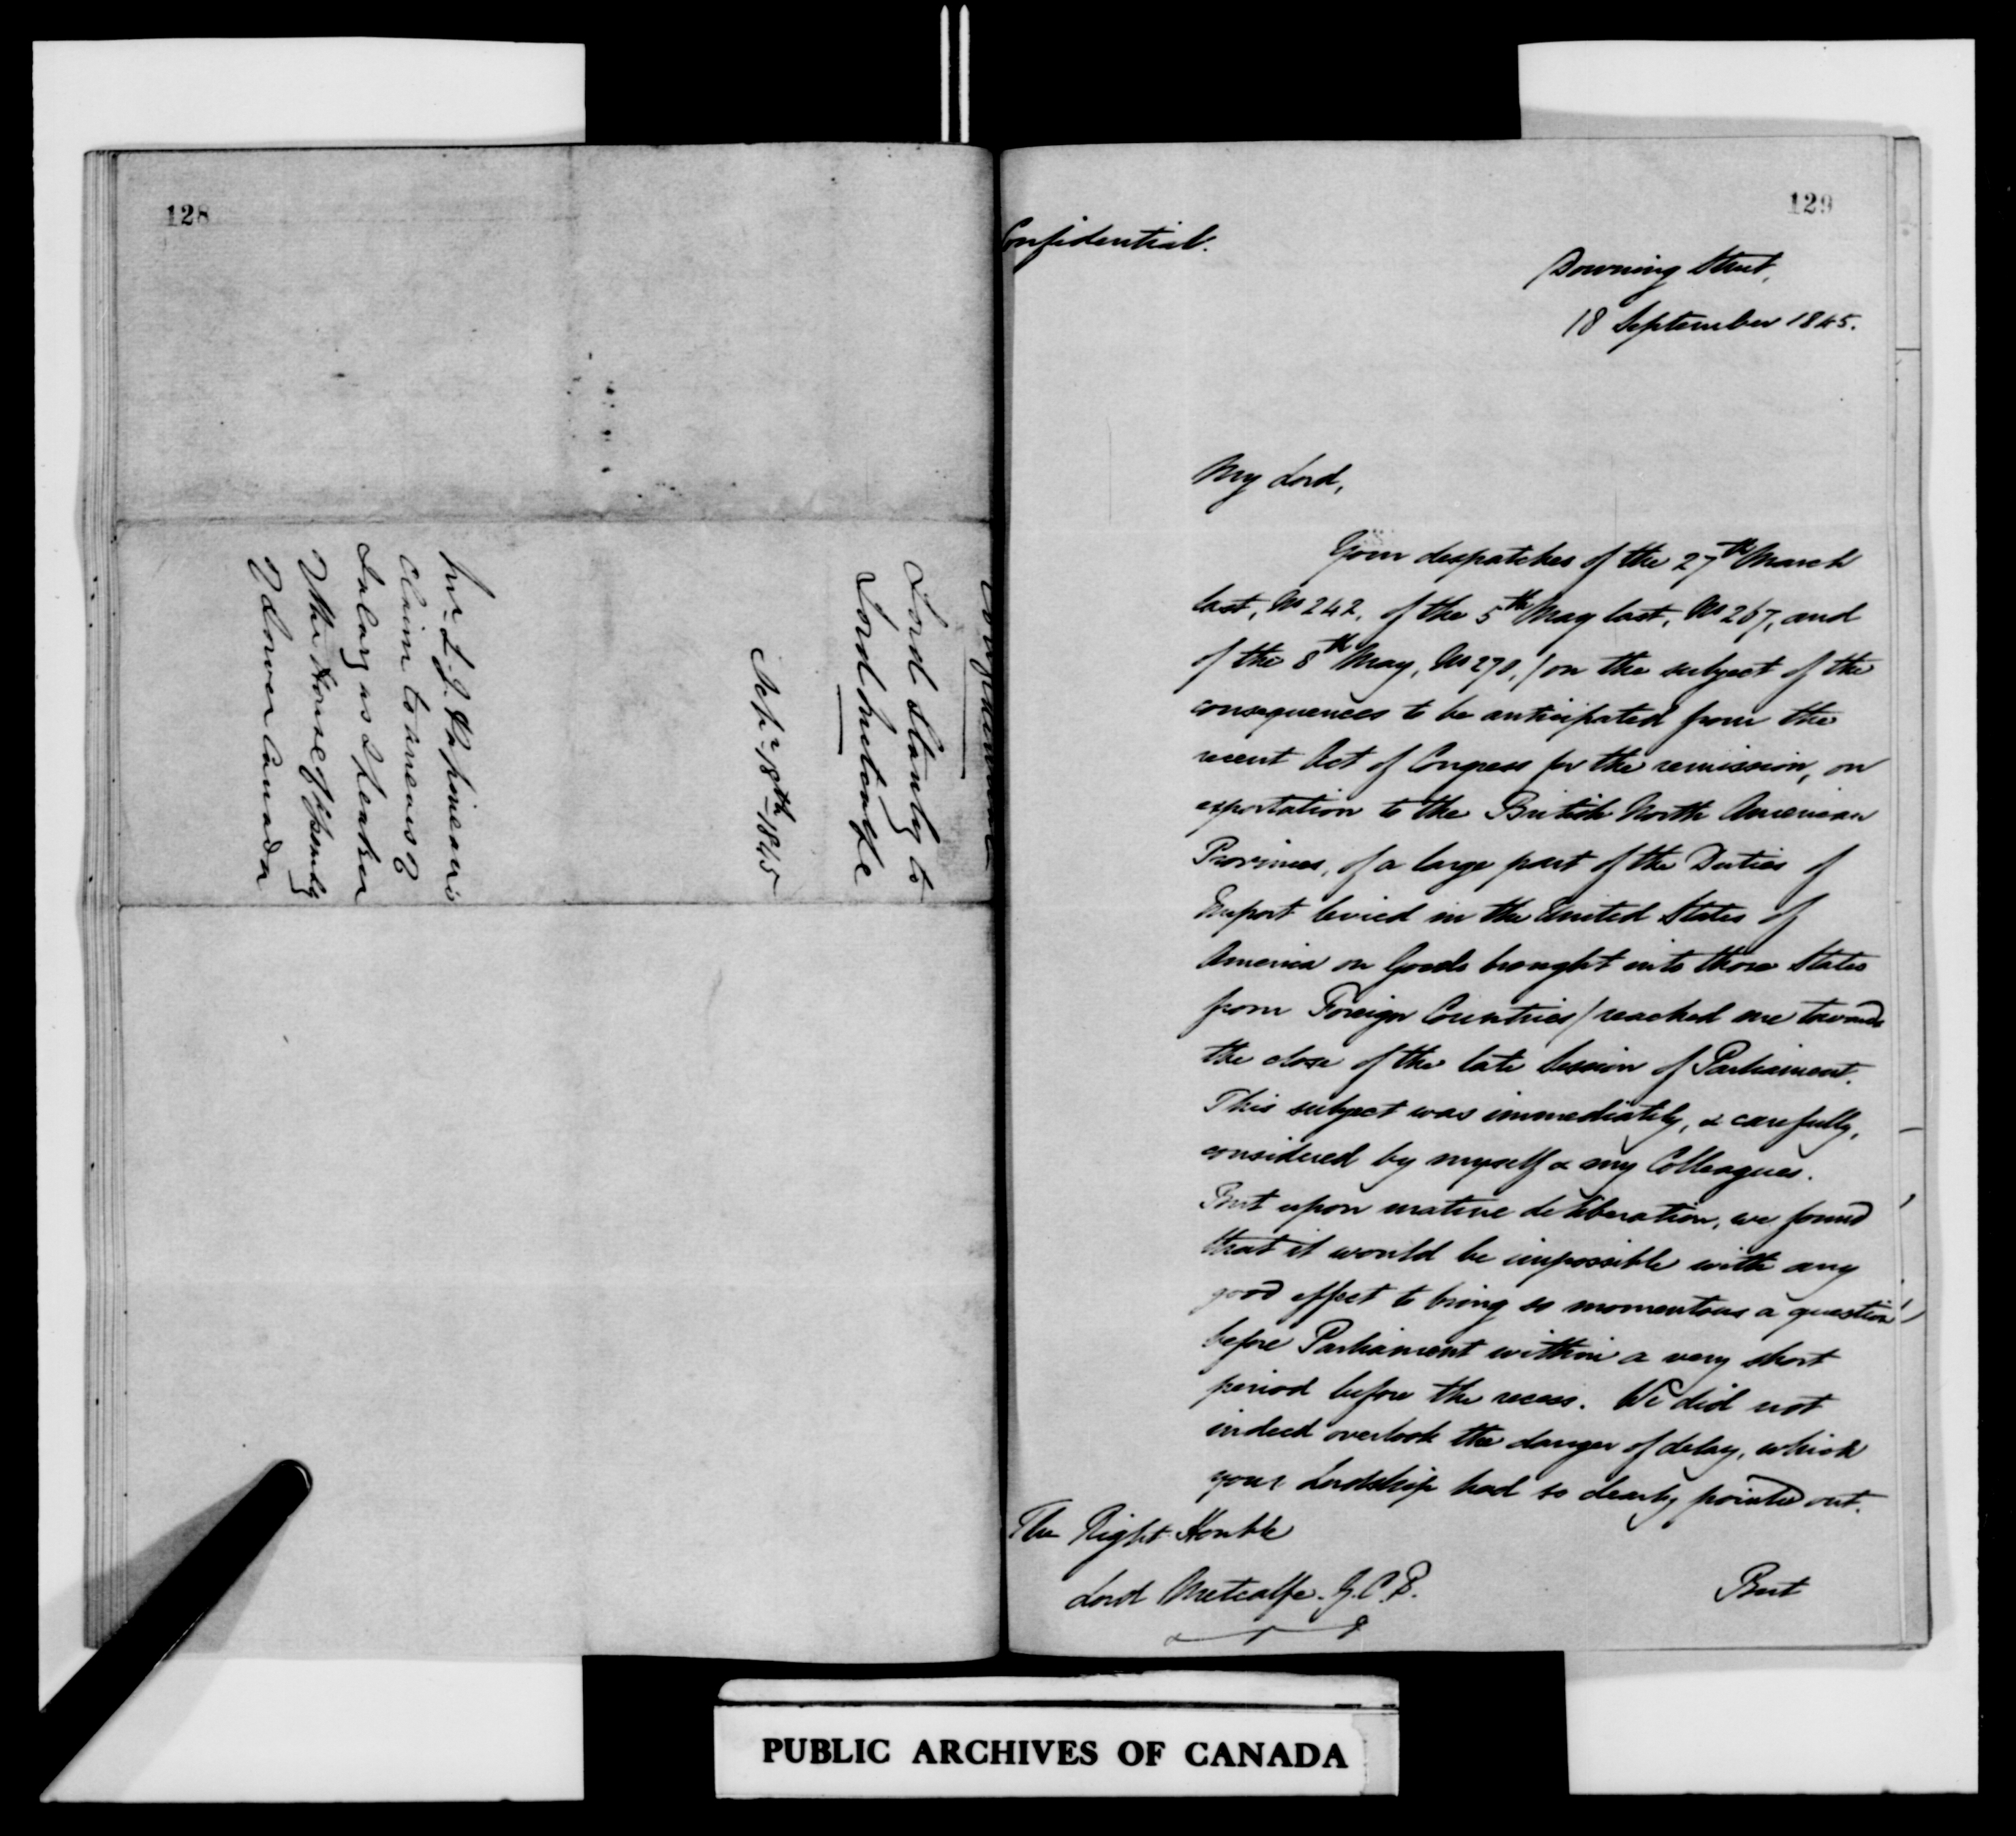 128
Confidential
Lord Stanley to
Lord Metcalfe
Sepr 18th 1845
Mr L. J. Papineau's
Claim to arrears of
Salary as Speaker
of the House of Assembly
of Lower Canada
129
Confidential.
Downing Street,
18 September 1845.
My Lord,
Your despatches of the 27th March
last, No 242, of the 5th May last, No 267, and
of the 8th May, No 270, / on the subject of the
consequences to be anticipated from the
recent Act of Congress for the remission, on
exportation to the British North American
Provinces, of a large part of the Duties of
Import levied in the United States of
America on Goods brought into those States
from Foreign Countries / reached me towards
the close of the late Session of Parliament.
This subject was immediately, & carefully,
considered by myself & my Colleagues.
But upon mature deliberation, we found
that it would be impossible with any
good effect to bring so momentous a question
before Parliament within a very short
period before the recess. We did not
indeed overlook the danger of delay, which
your Lordship had so clearly pointed out.
The Right Honble
Lord Metcalfe. G.C.B.
But
PUBLIC ARCHIVES OF CANADA